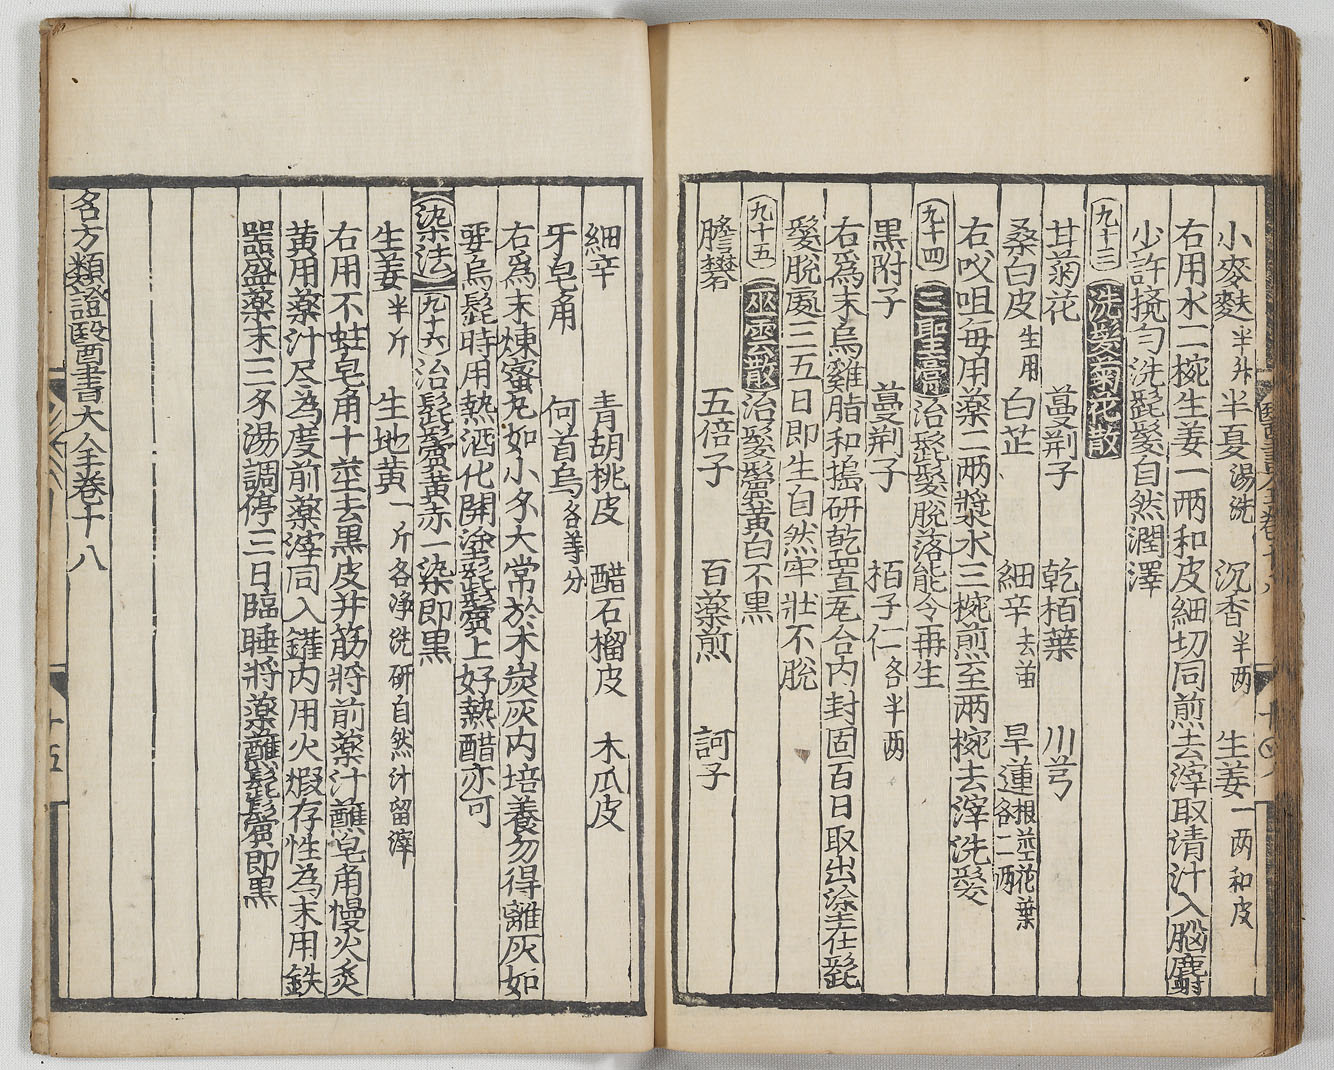 小麥麩半升 半夏湯洗 沉香半两 生姜一两和皮
右用水二椀生姜一两和皮細切同煎去滓取清汁入腦麝
少許攪匀洗髭髮自然潤澤
九十三 洗髮菊花散
甘菊花 蔓荆子 乾栢葉 川芎
桑白皮生用 白芷 細辛去苗 旱蓮根莖花葉各二两
右㕮咀每用藥二两漿水三椀煎至两椀去滓洗髮
九十四 三聖膏治髭髮脫落能令再生
黑附子 蔓荆子 栢子仁各半两
右為末烏雞脂和搗研乾置瓦合内封固百日取出塗在髭
髮脫處三五日即生自然牢壯不脫
九十五 巫雲散治髮鬚黃白不黑
膽礬 五倍子 百藥煎 訶子
細辛 青胡桃皮 醋石榴皮 木瓜皮
牙皂角 何首烏各等分
右為末煉蜜丸如小彈大常於木炭灰内培養勿得離灰如
要烏髭時用熱酒化開塗髭鬢上好熱醋亦可
染法 九十六治髭鬢黃赤一染即黑
生姜半斤 生地黃一斤各浄洗研自然汁留滓
右用不蛀皂角十莖去黑皮并筋將前藥汁蘸皂角慢火炙
黃用藥汁尽為度前藥滓同入鑵内用火煆存性為末用鉄
器盛藥末三錢湯調停三日臨睡將藥蘸髭鬢即黑
名方類證醫書大全卷十八